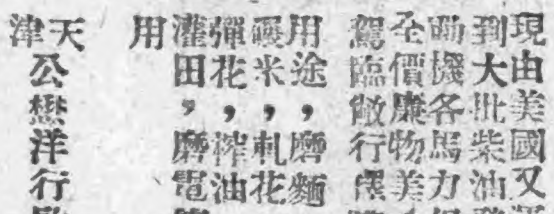 現由美國又
到大批柴油
動機各馬力
全價廉物美
駕臨敝行
用途，磨麵
碾米，軋花
彈花，榨油
灌田，磨電
用
天津公懋洋行